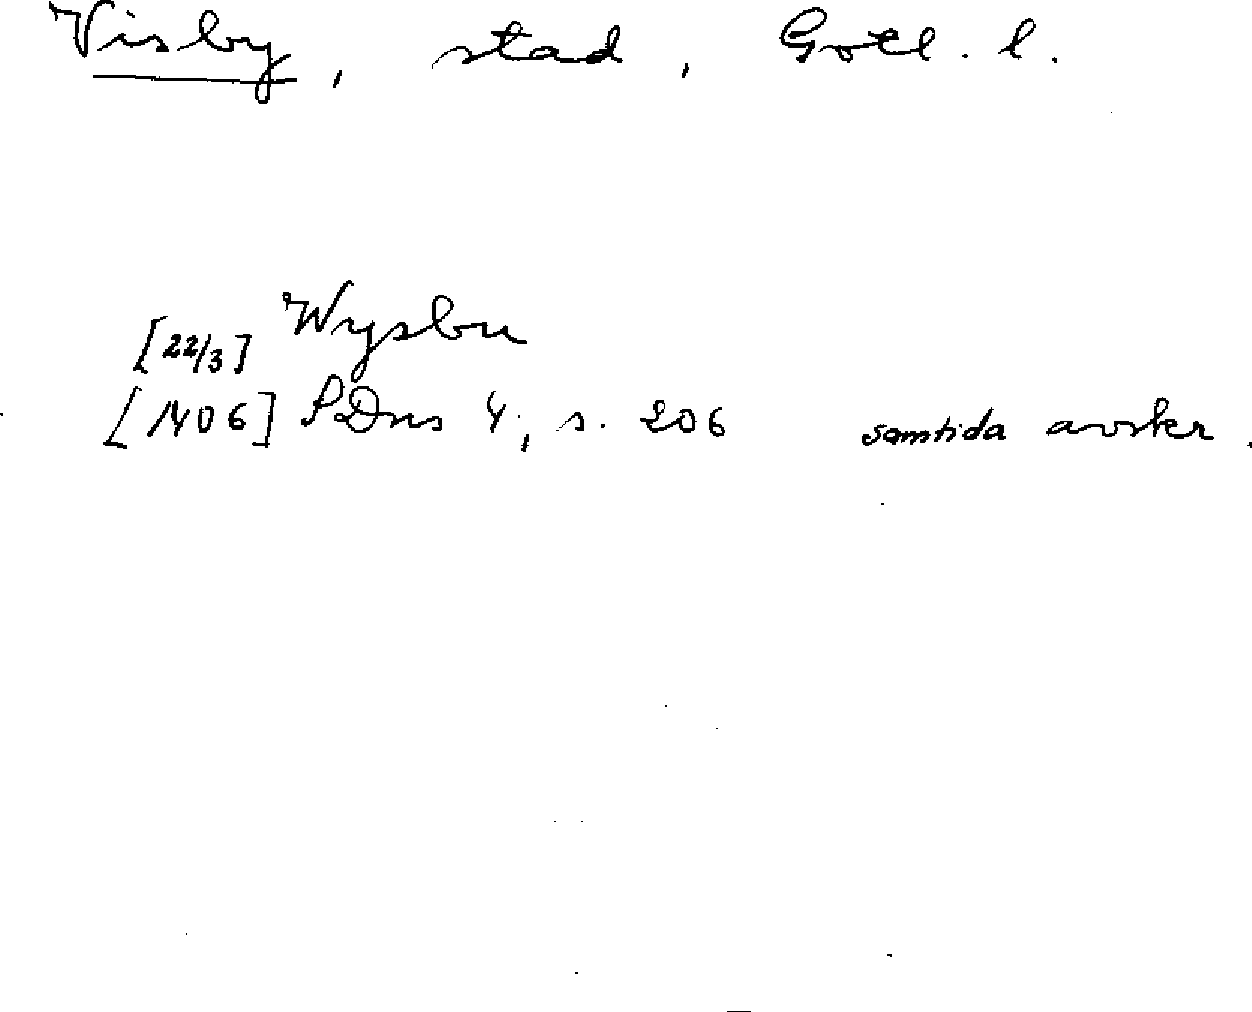 Visby, stad, Gotl. l.
[22/3] Wysbu
[1406] SDns 4, s. 206 samtida avskr.